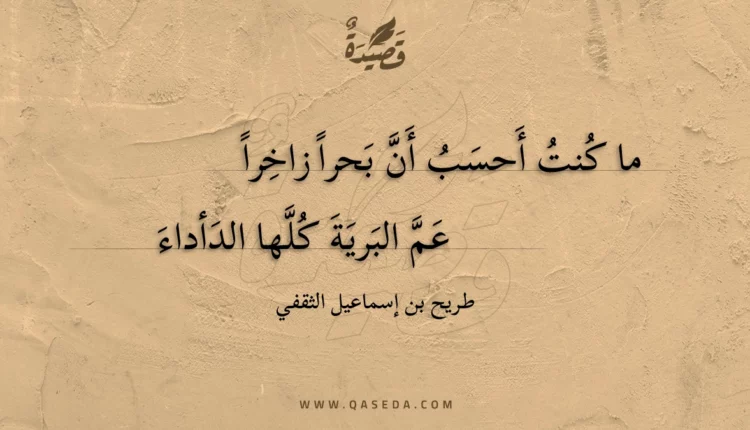 قَصِيدَةٌ
ما كُنتُ أَحسَبُ أَنَّ بَحراً زاخِراً
عَمَّ البَريَةَ كُلَّها الدَأداءَ
طريح بن إسماعيل الثقفي
WWW.QASEDA.COM